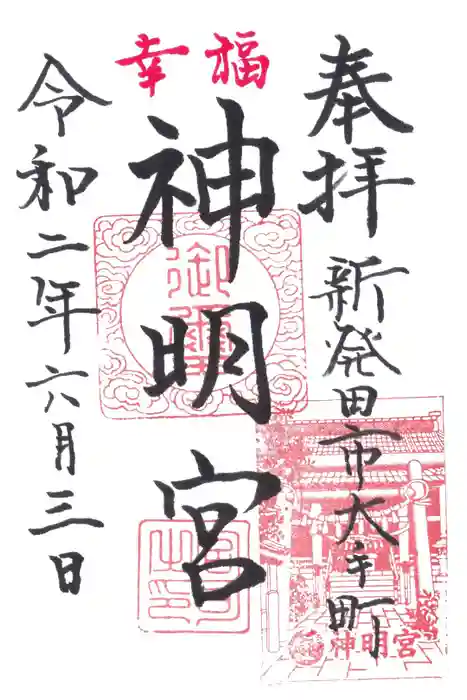 奉拝
新発田市大手町
幸福
神明宮
御璽
神明宮
令和二年六月三日